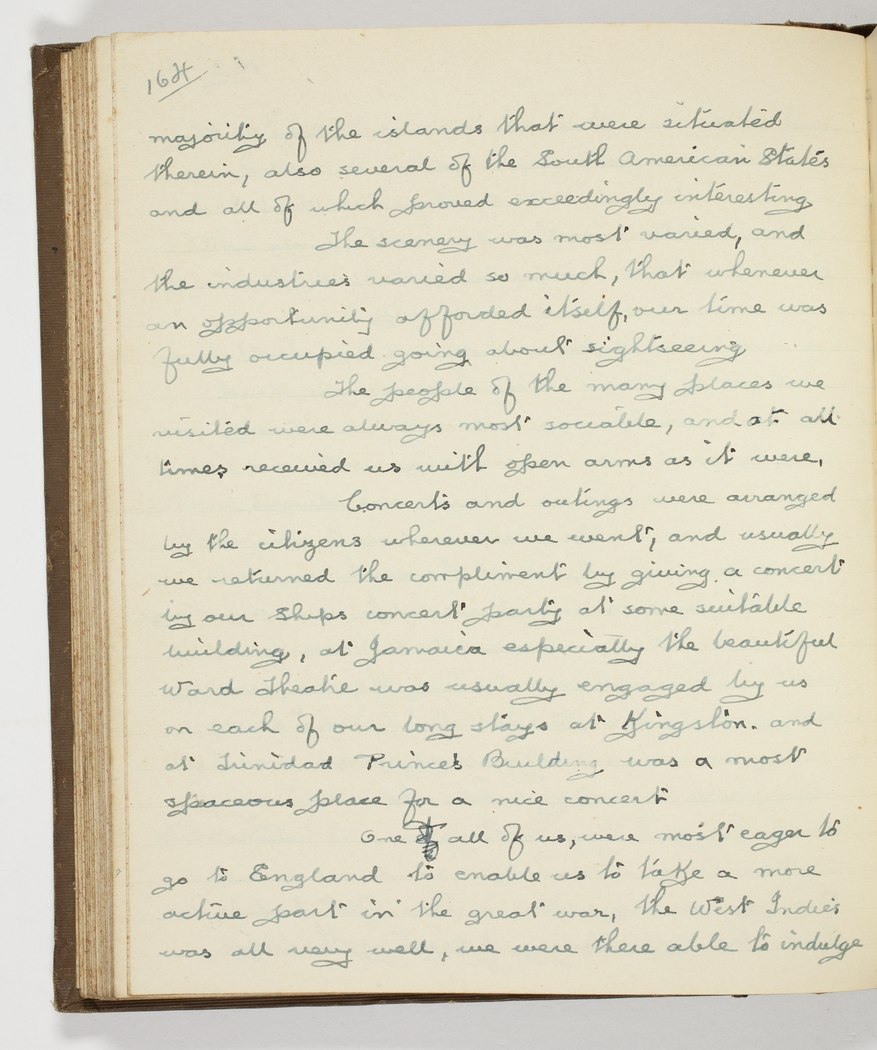 164
majority of the islands that were situated
therein, also several of the South American States
and all of which proved exceedingly interesting
The scenery was most varied, and
the industries varied so much, that whenever
an opportunity afforded itself, our time was
fully occupied going about sightseeing
The people of the many places we
visited were always most sociable, and at all
times received us with open arms as it were,
Concerts and outings were arranged
by the citizens wherever we went, and usually
we returned the compliment by giving a concert
by our ships concert party at some suitable
building, at Jamaica especially the beautiful
Ward Theatre was usually engaged by us
on each of our long stays at Kingston. and
at Trinidad Princes Building was a most
spaceous place for a nice concert
One all of us, were most eager to
go to England to enable us to take a more
active part in the great war, the West Indies
was all very well, we were there able to indulge